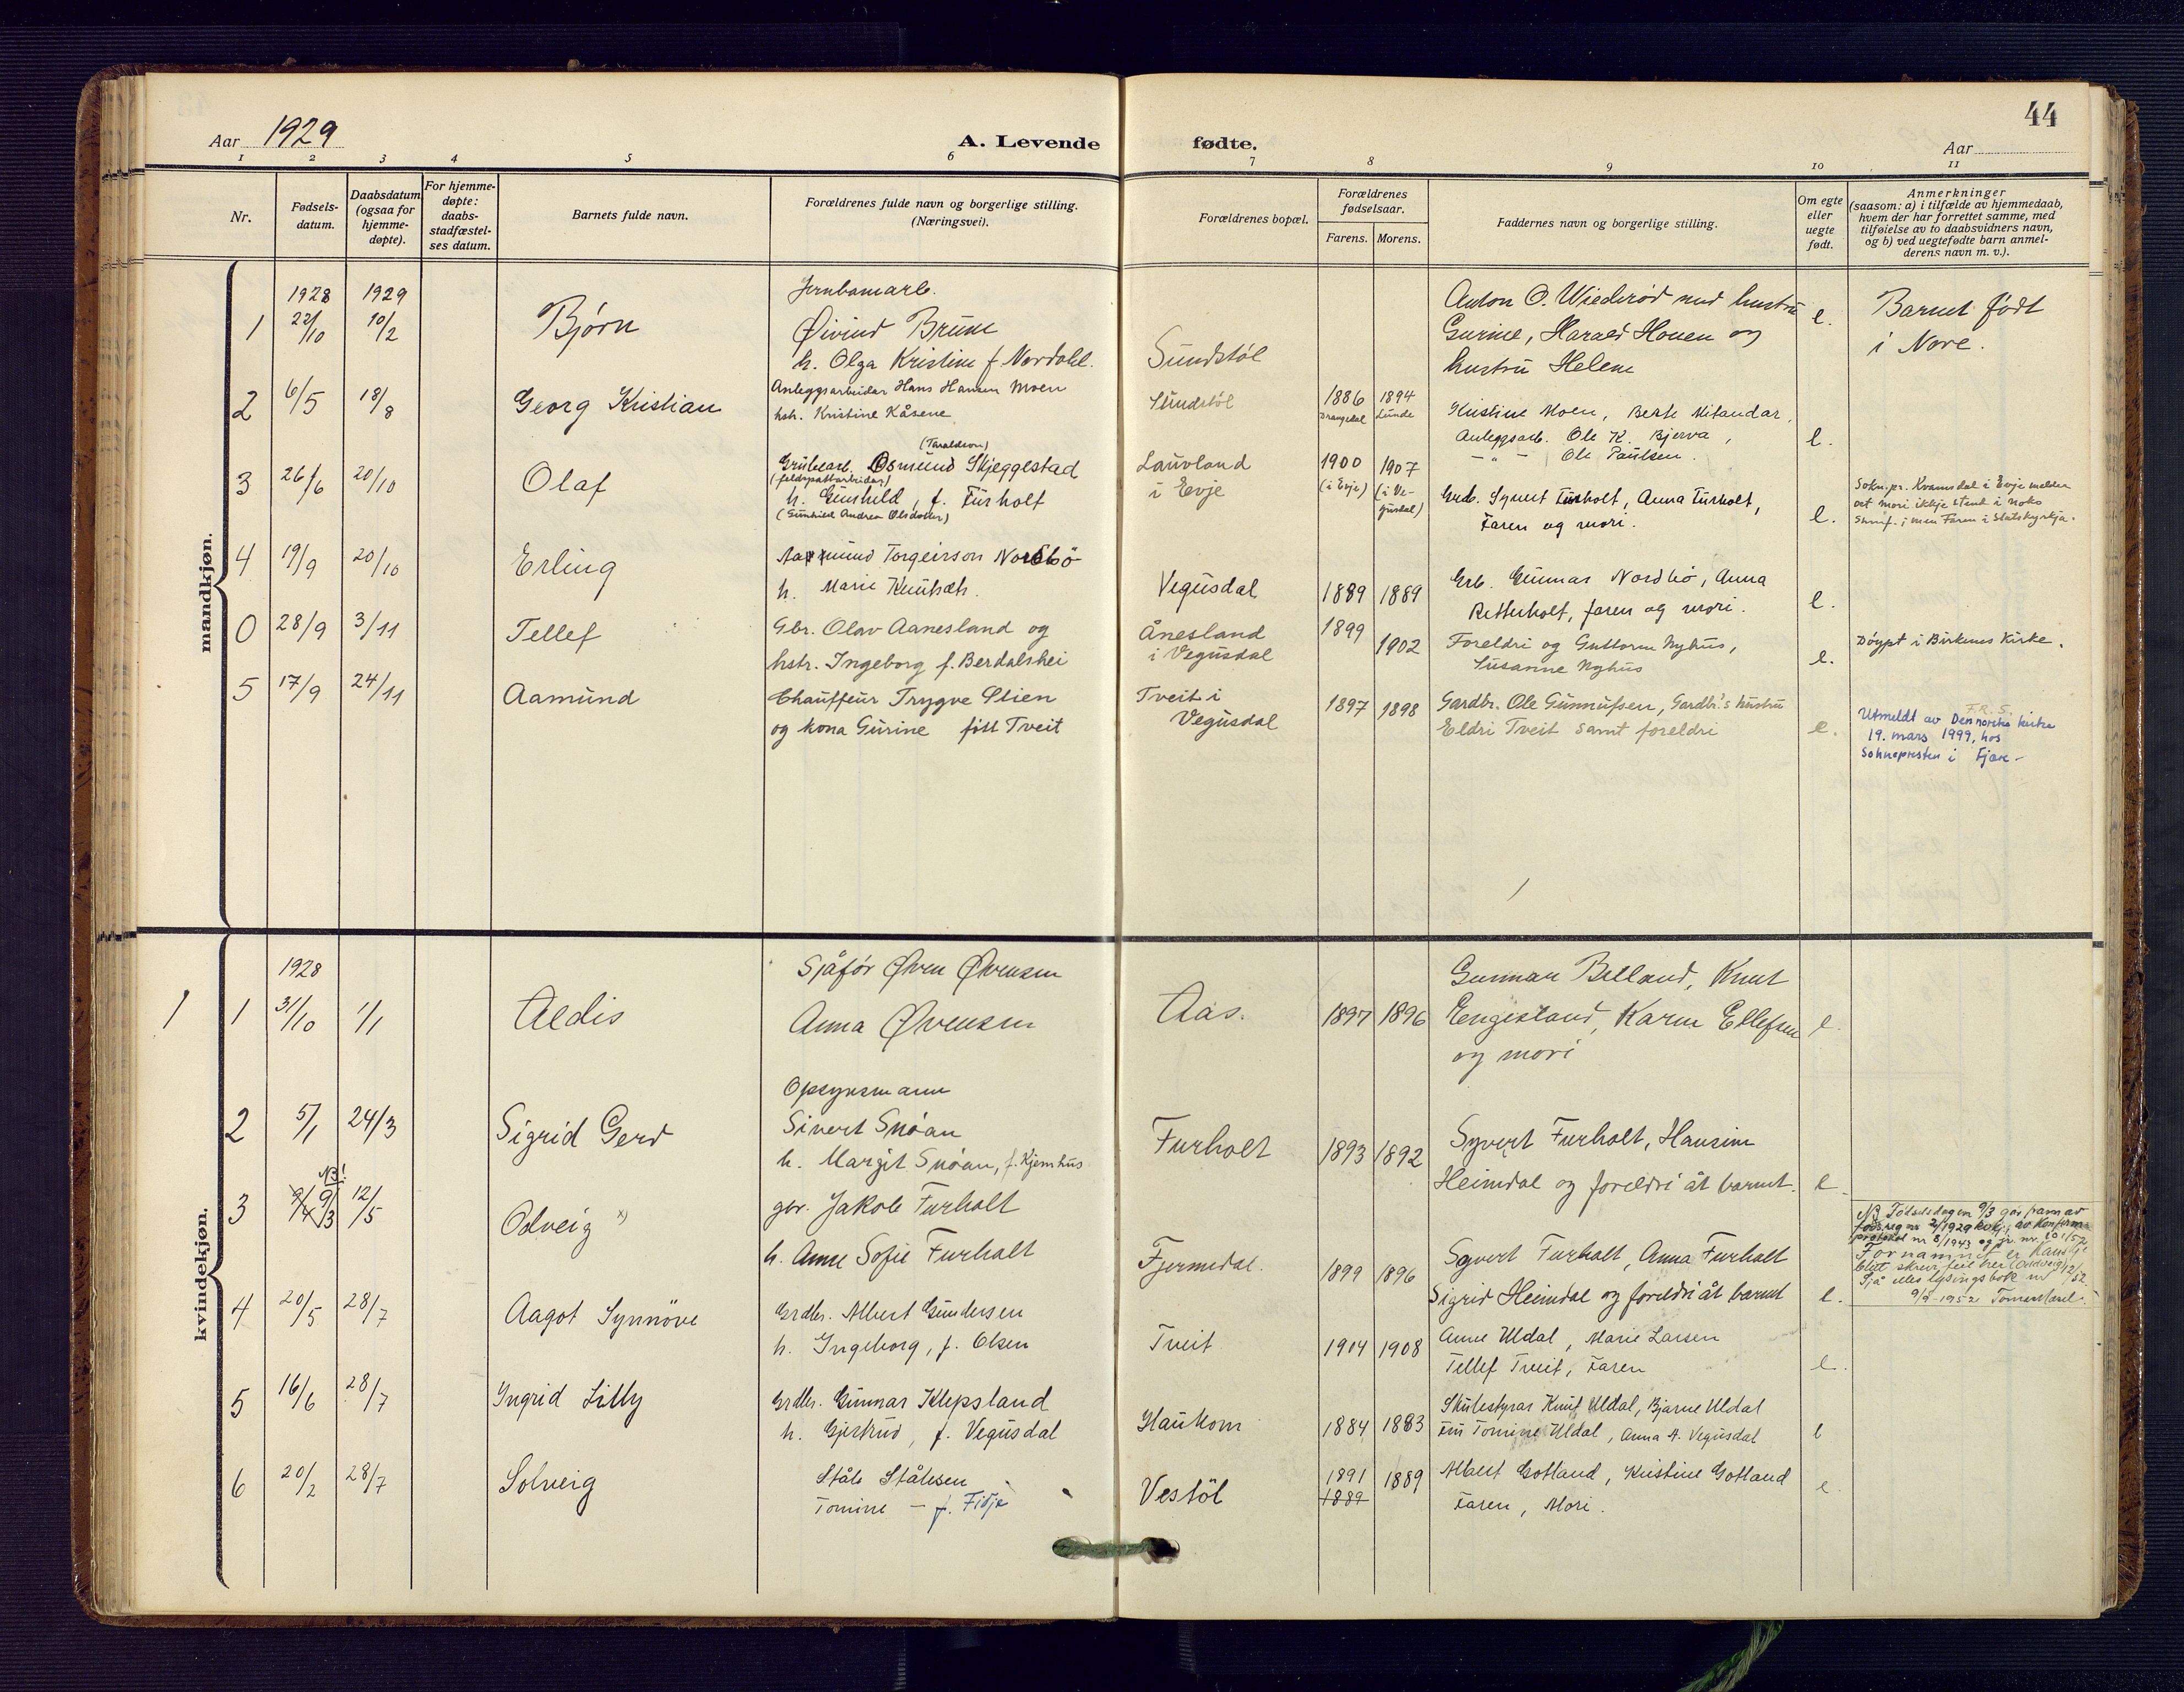 44
Aar 1929
A. Levende fødte.
Aar
1 2 3 4 5 6 7 8 9 10 11
Nr.
Fødsels-
datum.
Daabsdatum
(ogsaa for
hjemme-
døpte).
For hjemme-
døpte:
daabs-
stadfæstel-
ses datum.
Barnets fulde navn.
Forældrenes fulde navn og borgerlige stilling.
(Næringsvei).
Forældrenes bopæl.
Forældrenes
fødselsaar.
Farens. Morens.
Faddernes navn og borgerlige stilling.
Om egte
eller
uegte
født.
Anmerkninger
(saasom: a) i tilfælde av hjemmedaab,
hvem der har forrettet samme, med
tilføielse av to daabsvidners navn,
og b) ved uegtefødte barn anmel-
derens navn m. v.).
mandkjøn.
1 1928 22/10 1929 10/2 Bjørn
Jernbanearb.
Øivind Bruun
h. Olga Kristine f. Nordahl.
Sundstøl
Anton O. Wiederød med hustru
Gurine, Harald Houen og
hustru Helene
e.
Barnet født
i Nore.
2 6/5 18/8 Georg Kristian
Anleggsarbeider Hans Hansen Moen
hstr. Kristine Kåsene
Sundstöl
1886 Drangedal 1894 Lunde
Kristine Moen, Berte Mitandar,
Anleggsarb. Ole K. Bjerva,
— " — Ole Paulsen.
e.
3 26/6 20/10 Olaf
(Taraldson)
Grubearb. Osmund Skjeggestad
(feldspatarbeidar)
h. Gunhild, f. Furholt
(Gunhild Andrea Olsdotter)
Lauvland
i Evje
1900 (i Evje) 1907 (i Ve-
gusdal)
Grdb. Syvert Furholt, Anna Furholt,
Faren og mori.
e.
Sokn.pr. Kvamsdal i Evje melder
at mori ikkje stend i noko
samf.; men Faren i Statskyrkja.
4 19/9 20/10 Erling
Aasmund Torgeirson Nordbö
h. Marie Knutsdt.
Vegusdal
1889 1889
Grb. Gunnar Nordbö, Anna
Retterholt, faren og mori.
e.
0 28/9 3/11 Tellef
Gbr. Olav Aanesland og
hstr. Ingeborg f. Berdalshei
Ånesland
i Vegusdal
1899 1902
Foreldri og Guttorm Nyhus,
Susanne Nyhus
e.
Döypt i Birkenes Kirke.
5 17/9 24/11 Aamund
Chauffeur Trygve Olsen
og kona Gurine fött Tveit
Tveit i
Vegusdal
1897 1898
Gardbr. Ole Gunnufsen, Gardbr.'s hustru
Eldri Tveit samt foreldri
e.
F.R. 5.
Utmeldt av Den norske kirke
19. mars 1999, hos
Soknepresten i Fjære
kvindekjøn.
1 1 1928 31/10 1/1 Aldis
Sjåfør Øven Øvensen
Anna Øvensen
Aas.
1897 1896
Gunnar Belland, Knut
Engestand, Karen Ellefsen
og mori
e.
2 5/1 24/3 Sigrid Gerd
Opsynsmann
Sivert Snöan
h. Margit Snöan, f. Kjemhus
Furholt
1893 1892
Syvert Furholt, Hansine
Heimdal og foreldri åt barnet.
e.
3 9/4 NB! 9/3 12/5 Odveig x)
gbr. Jakob Furholt
h. Anne Sofie Furholt
Fjermedal.
1899 1896
Syvert Furholt, Anna Furholt
Sigrid Heimdal og foreldri åt barnet
e.
NB Fødselsdagen 9/3 går fram av
föds.reg nr 2/1929 kvk, av konfirma
protokol nr 8/1943 og jr. nr. 601/52
Fornamnet er kanskje
blitt skrive feil her (Andveig) 12/
Sjå elles lysingsbok nr /52.
9/9-1952
4 20/5 28/7 Aagot Synnöve
Grdbr. Albert Gundersen
h. Ingeborg, f. Olsen
Tveit
1904 1908
Anne Uldal, Marie Larsen
Tellef Tveit, Faren
e.
5 16/6 28/7 Ingrid Lilly
Grdbr. Gunnar Klepsland
h. Gjertrud, f. Vegusdal
Haukom
1884 1883
Skulestyrar Knut Uldal, Bjarne Uldal
Fru Tomine Uldal, Anna A. Vegusdal
e
6 20/2 28/7 Solveig
Ståle Stålesen
Tomine — f. Fidje
Vestöl
1891 1889 1889
Albert Gotland, Kristine Gotland
Faren, Mori.
e.